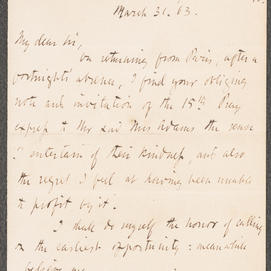 March 31. 63.
My dear Sir,
On returning from Paris, after a
fortnight's absence, I find your obliging
note and invitation of the 15th. Pray
express to Mr and Mrs Adams the sense
I entertain of their kindness, and also
the regret I feel at having been unable
to profit by it.
I shall do myself the honor of calling
at the earliest opportunity: meanwhile
believe me